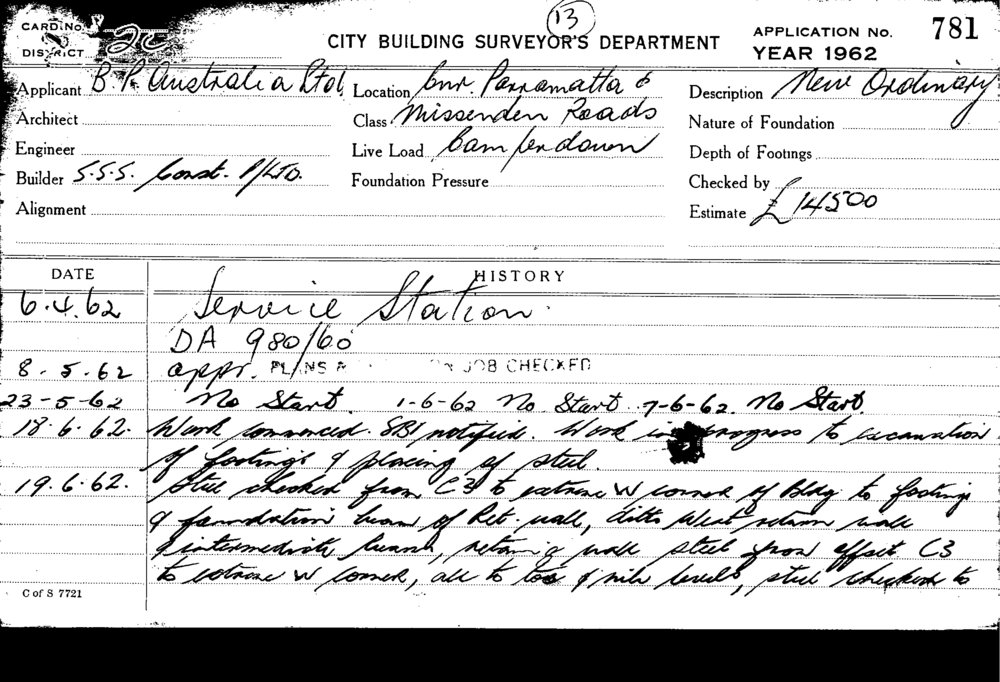 13
CARD No. CITY BUILDING SURVEYOR'S DEPARTMENT APPLICATION No. 781
DISTRICT 2C YEAR 1962
Applicant B.P. Australia Ltd, Location Cnr. Parramatta & Description New Ordinary
Architect Class Missenden Roads Nature of Foundation
Engineer Live Load Camperdown Depth of Footings
Builder S.S.S. Const. P/LTD. Foundation Pressure Checked by
Alignment Estimate £ 14500
DATE HISTORY
6.4.62 Service Station.
DA 980/60
8.5.62 appr. PLANS JOB CHECKED
23-5-62 No Start. 1-6-62 No Start 7-6-62. No Start
18.6.62. Work commenced. SBI notified. Work in progress to excavation
of footings & placing of steel.
19.6.62. Steel checked from C3 to extreme W corner of Bldg to footings
& foundation beam of Ret. wall, ditto West return wall
& intermediate beam, retaining wall steel from offset C3
to extreme W corner, all to levels, steel checked to
C of S 7721